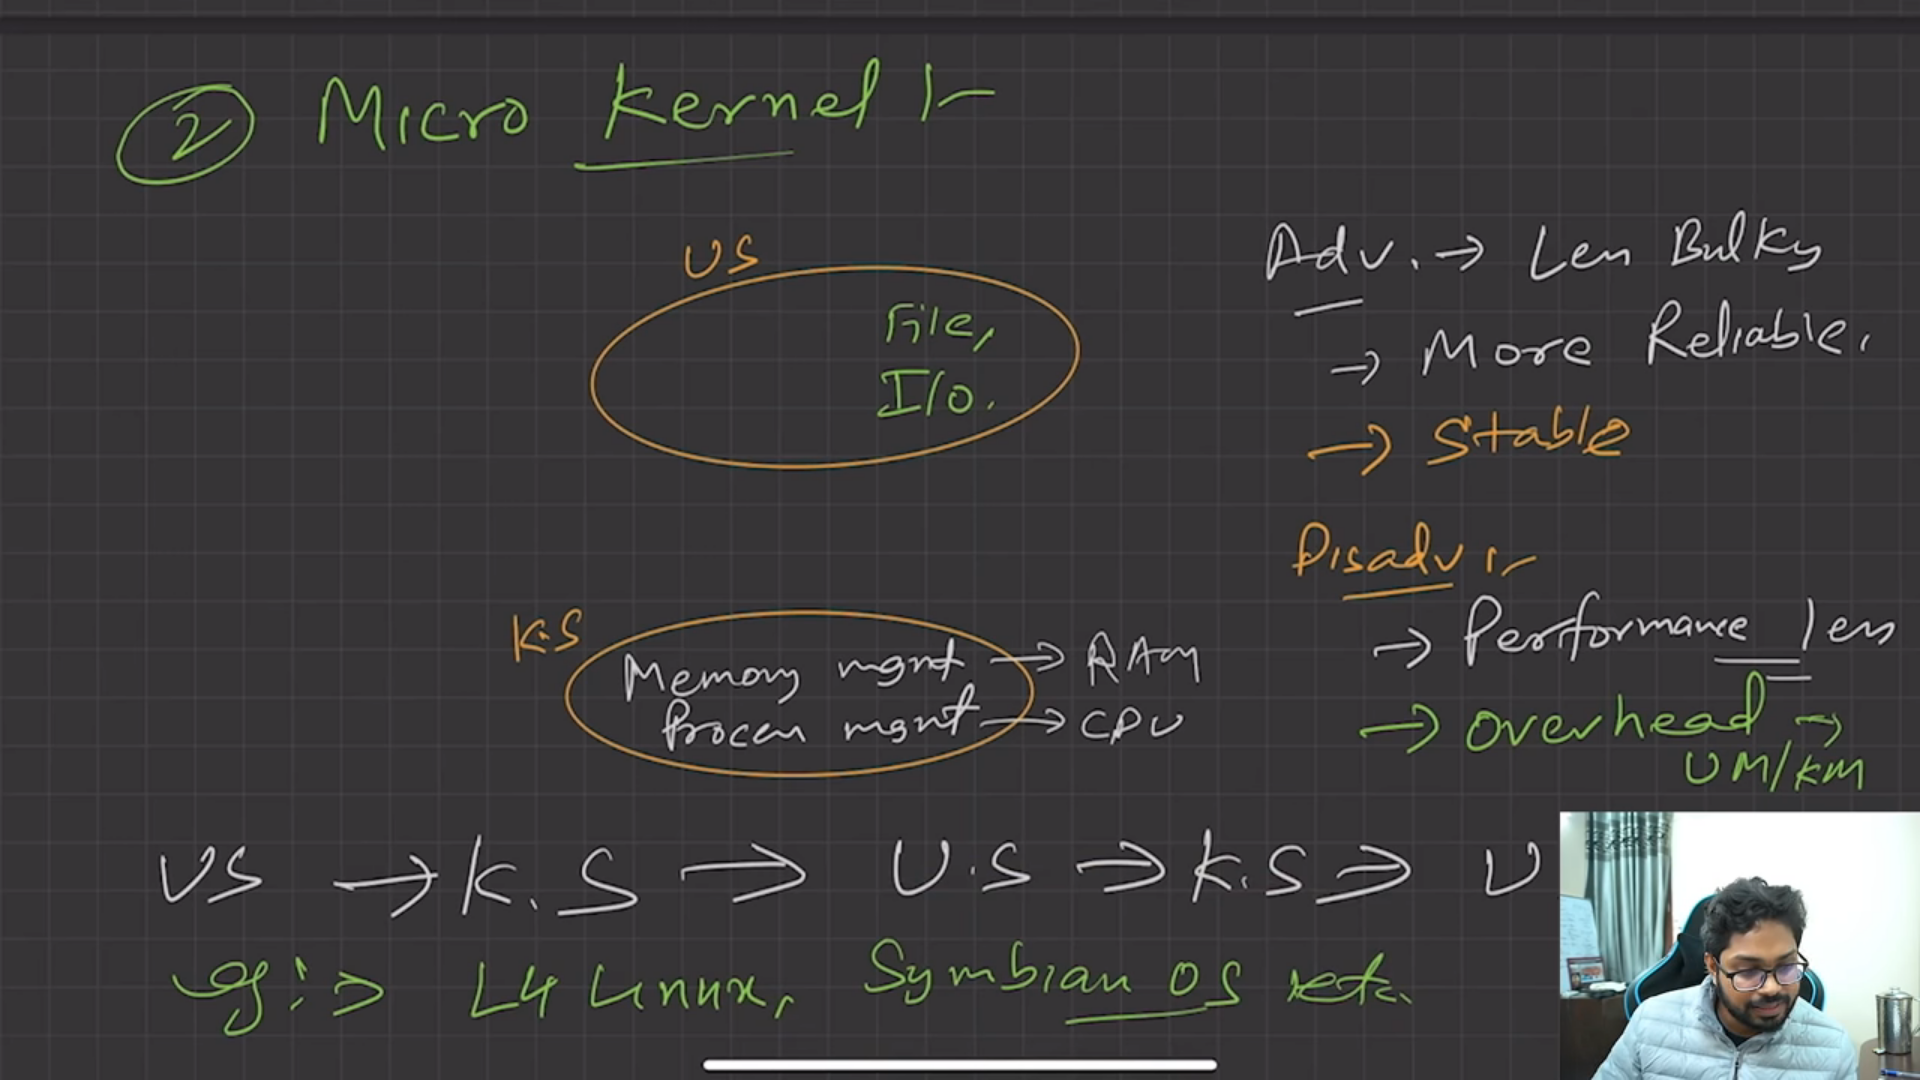 2 Micro Kernel :-
US
File,
I/O.
K.S
Memory mgmt → RAM
Process mgmt → CPU
Adv. → Less Bulky
→ More Reliable.
→ Stable
Disadv :-
→ Performance less
→ Overhead →
UM/KM
US → K.S → U.S → K.S → U
eg :→ L4 Linux, Symbian OS etc.